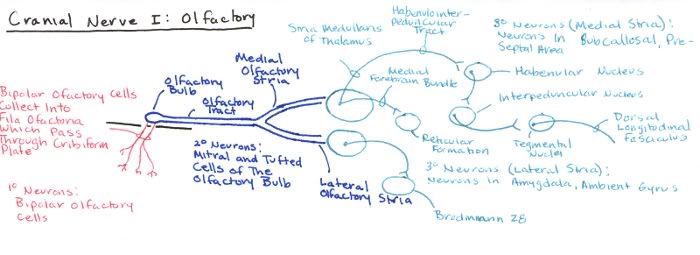 Cranial Nerve I: Olfactory
Habenulointer-
peduncular
Tract
Stria Medullaris
of Thalamus
3° Neurons (Medial Stria):
Neurons In Subcallosal, Pre-
Septal Area
Medial
Olfactory
Stria
Medial
Forebrain Bundle
Habenular Nucleus
Olfactory
Bulb
Olfactory
Tract
Interpeduncular Nucleus
Bipolar Olfactory Cells
Collect Into
Fila Olfactoria
Which Pass
Through Cribiform
Plate
Reticular
Formation
Tegmental
Nuclei
Dorsal
Longitudinal
Fasciculus
2° Neurons:
Mitral and Tufted
Cells of The
Olfactory Bulb
Lateral
Olfactory Stria
3° Neurons (Lateral Stria):
Neurons in Amygdala, Ambient Gyrus
1° Neurons:
Bipolar Olfactory
Cells
Brodmann 28